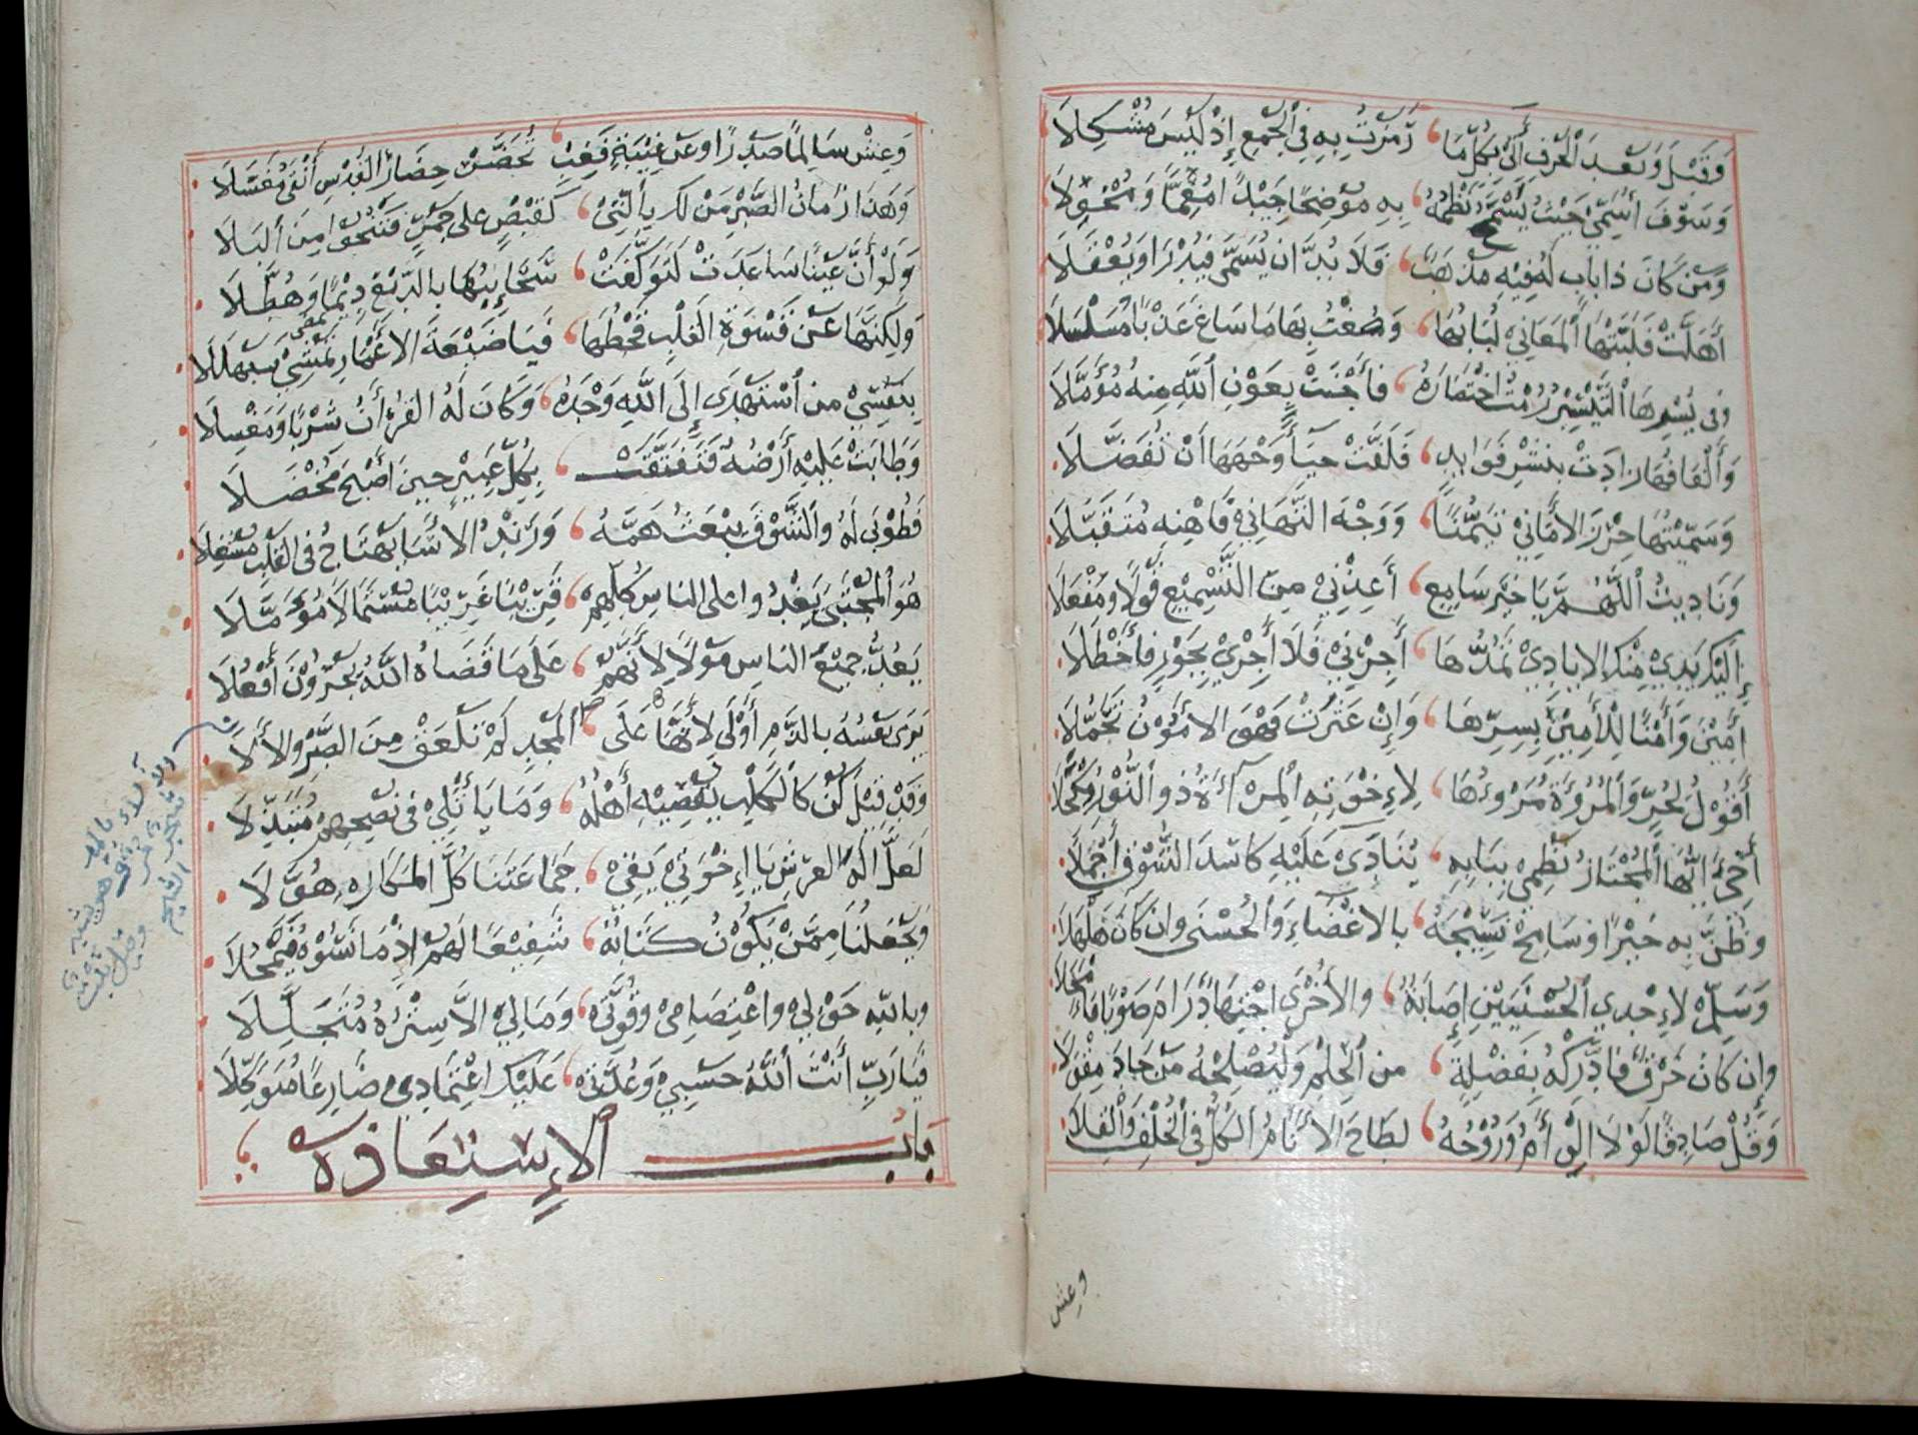 وَقَبْلَ وَبَعْدَ الْحَرْفِ أَتَى بِكُلِّ مَا رَمَزْتُ بِهِ فِي الْجَمْعِ إِذْ لَيْسَ مُشْكِلَا
وَسَوْفَ أُسَمِّي حَيْثُ يَسْمَحُ نَظْمُهُ بِهِ مُوَضِّحًا جِيدًا مُعَمًّا وَمُخْوَلَا
وَمَنْ كَانَ ذَا بَابٍ لَهُ فِيهِ مَذْهَبٌ فَلَا بُدَّ أَن يُسَمَّى فَيُدْرَا وَيُعْقَلَا
أَهَلَّتْ فَلَبَّتْهَا الْمَعَانِي لُبَابُهَا وَصُغْتُ بِهَا مَا سَاغَ عَذْبًا مُسَلْسَلَا
وَفِي يُسْرِهَا التَّيْسِيرُ رُمْتُ اخْتِصَارَهُ فَأَجْنَتْ بِعَوْنِ اللَّهِ مِنْهُ مُؤَمَّلَا
وَأَلْفَافُهَا زَادَتْ بِنَشْرِ فَوَايِدٍ فَلَفَّتْ حَيَاءً وَجْهَهَا أَنْ تُفَضَّلَا
وَسَمَّيْتُهَا حِرْزَ الْأَمَانِي تَيَمُّنًا وَوَجْهَ التَّهَانِي فَاهْنِهِ مُتَقَبَّلَا
وَنَادَيْتُ اللَّهُمَّ يَا خَيْرَ سَامِعٍ أَعِذْنِي مِنَ التَّسْمِيعِ قَوْلًا وَمَفْعَلَا
إِلَيْكَ يَدِي مِنْكَ الْايَادِي تَمُدُّهَا أَجِرْنِي فَلَا أَجْرِي بِجَوْرٍ فَأَخْطَلَا
أَمِينَ وَأَمْنًا لِلْأَمِينِ بِسِرِّهَا وَإِنْ عَثَرَتْ فَهْوَ الْأَمُونُ تَحَمُّلَا
أَقُولُ لِحُرٍّ وَالْمُرُوءَةُ مَرْءُهَا لِإِخْوَتِهِ الْمِرْآةُ ذُو النُّورِ مِكْحَلَا
أَخِي أَيُّهَا الْمُجْتَازُ نَظْمِي بِبَابِهِ يُنَادَى عَلَيْهِ كَاسِدَ السُّوقِ أَجْمِلَا
وَظُنَّ بِهِ خَيْرًا وَسَامِحْ نَسِيجَهُ بِالْاغْضَاءِ وَالْحُسْنَى وَإِن كَانَ هَلْهَلَا
وَسَلِّمْ لِإِحْدَى الْحُسْنَيَيْنِ إِصَابَةٌ وَالْأُخْرَى اجْتِهَادٌ رَامَ صَوْبًا فَأَمْحَلَا
وَإِن كَانَ خَرْقٌ فَادَّرِكْهُ بِفَضْلَةٍ مِنَ الْحِلْمِ وَلْيُصْلِحْهُ مَنْ جَادَ مِقْوَلَا
وَقُلْ صَادِقًا لَوْلَا الْوِئَامُ وَرُوحُهُ لَطَاحَ الْأَنَامُ الْكُلُّ فِي الْخُلْفِ وَالْقِلَا
وعش
وَعِشْ سَالِمًا صَدْرًا وَعَنْ غِيبَةٍ فَغِبْ تُحَضَّرْ حِضَارَ الْقُدْسِ أَنْقَى مُغَسَّلَا
وَهَذَا زَمَانُ الصَّبْرِ مَنْ لَكَ بِالَّتِي كَقَبْضٍ عَلَى جَمْرٍ فَتَنْجُوا مِنَ الْبَلَا
وَلَوْ أَنَّ عَيْنًا سَاعَدَتْ لَتَوَكَّفَتْ سَحَائِبُهَا بِالدَّمْعِ دِيمًا وَهُطَّلَا
وَلَكِنَّهَا عَنْ قَسْوَةِ الْقَلْبِ قَحْطُهَا فَيَا ضَيْعَةَ الْأَعْمَارِ تَمْشِي سَبَهْلَلَا
بِنَفْسِي مَنِ اسْتَهْدَى إِلَى اللَّهِ وَحْدَهُ وَكَانَ لَهُ الْقُرْأَنُ شُرْبًا وَمَغْسِلَا
وَطَابَتْ عَلَيْهِ أَرْضُهُ فَتَفَتَّقَتْ بِكُلِّ عَبِيرٍ حِينَ أَصْبَحَ مُخْضَلَا
فَطُوبَى لَهُ وَالشَّوْقُ يَبْعَثُ هَمَّهُ وَزَنْدُ الْأَسَا يَهْتَاجُ فِي الْقَلْبِ مُشْعِلَا
هُوَ الْمُجْتَبَى يَغْدُوا عَلَى النَّاسِ كُلِّهِمْ قَرِيبًا غَرِيبًا مُسْتَمَالًا مُؤَمَّلَا
يَعُدُّ جَمِيعَ النَّاسِ مَوْلًا لِأَنَّهُمْ عَلَى مَا قَضَاهُ اللَّهُ يُجْرُونَ أَفْعُلَا
يَرَى نَفْسَهُ بِالذَّمِّ أَوْلَى لِأَنَّهَا عَلَى الْمَجْدِ لَمْ تَلْعَقْ مِنَ الصَّبْرِ وَالْأَلَا
وَقَدْ قِيلَ كُنْ كَالْكَلْبِ يُقْصِيهِ أَهْلُهُ وَمَا يَأْتَلِي فِي نُصْحِهِمْ مُتَبَذِّلَا
لَعَلَّ إِلَهَ الْعَرْشِ يَا إِخْوَتِي يَقِي جَمَاعَتَنَا كُلَّ الْمَكَارِهِ هُوَّلَا
وَيَجْعَلُنَا مِمَّنْ يَكُونُ كِتَابُهُ شَفِيعًا لَهُمْ إِذْ مَا نَسُوهُ فَيَمْحَلَا
وَبِاللَّهِ حَوْلِي وَاعْتِصَامِي وَقُوَّتِي وَمَا لِيَ إِلَّا سِتْرُهُ مُتَجَلِّلَا
فَيَا رَبِّ أَنْتَ اللَّهُ حَسْبِي وَعُدَّتِي عَلَيْكَ اعْتِمَادِي ضَارِعًا مُتَوَكِّلَا
بَابُ الْإِسْتِعَاذَة